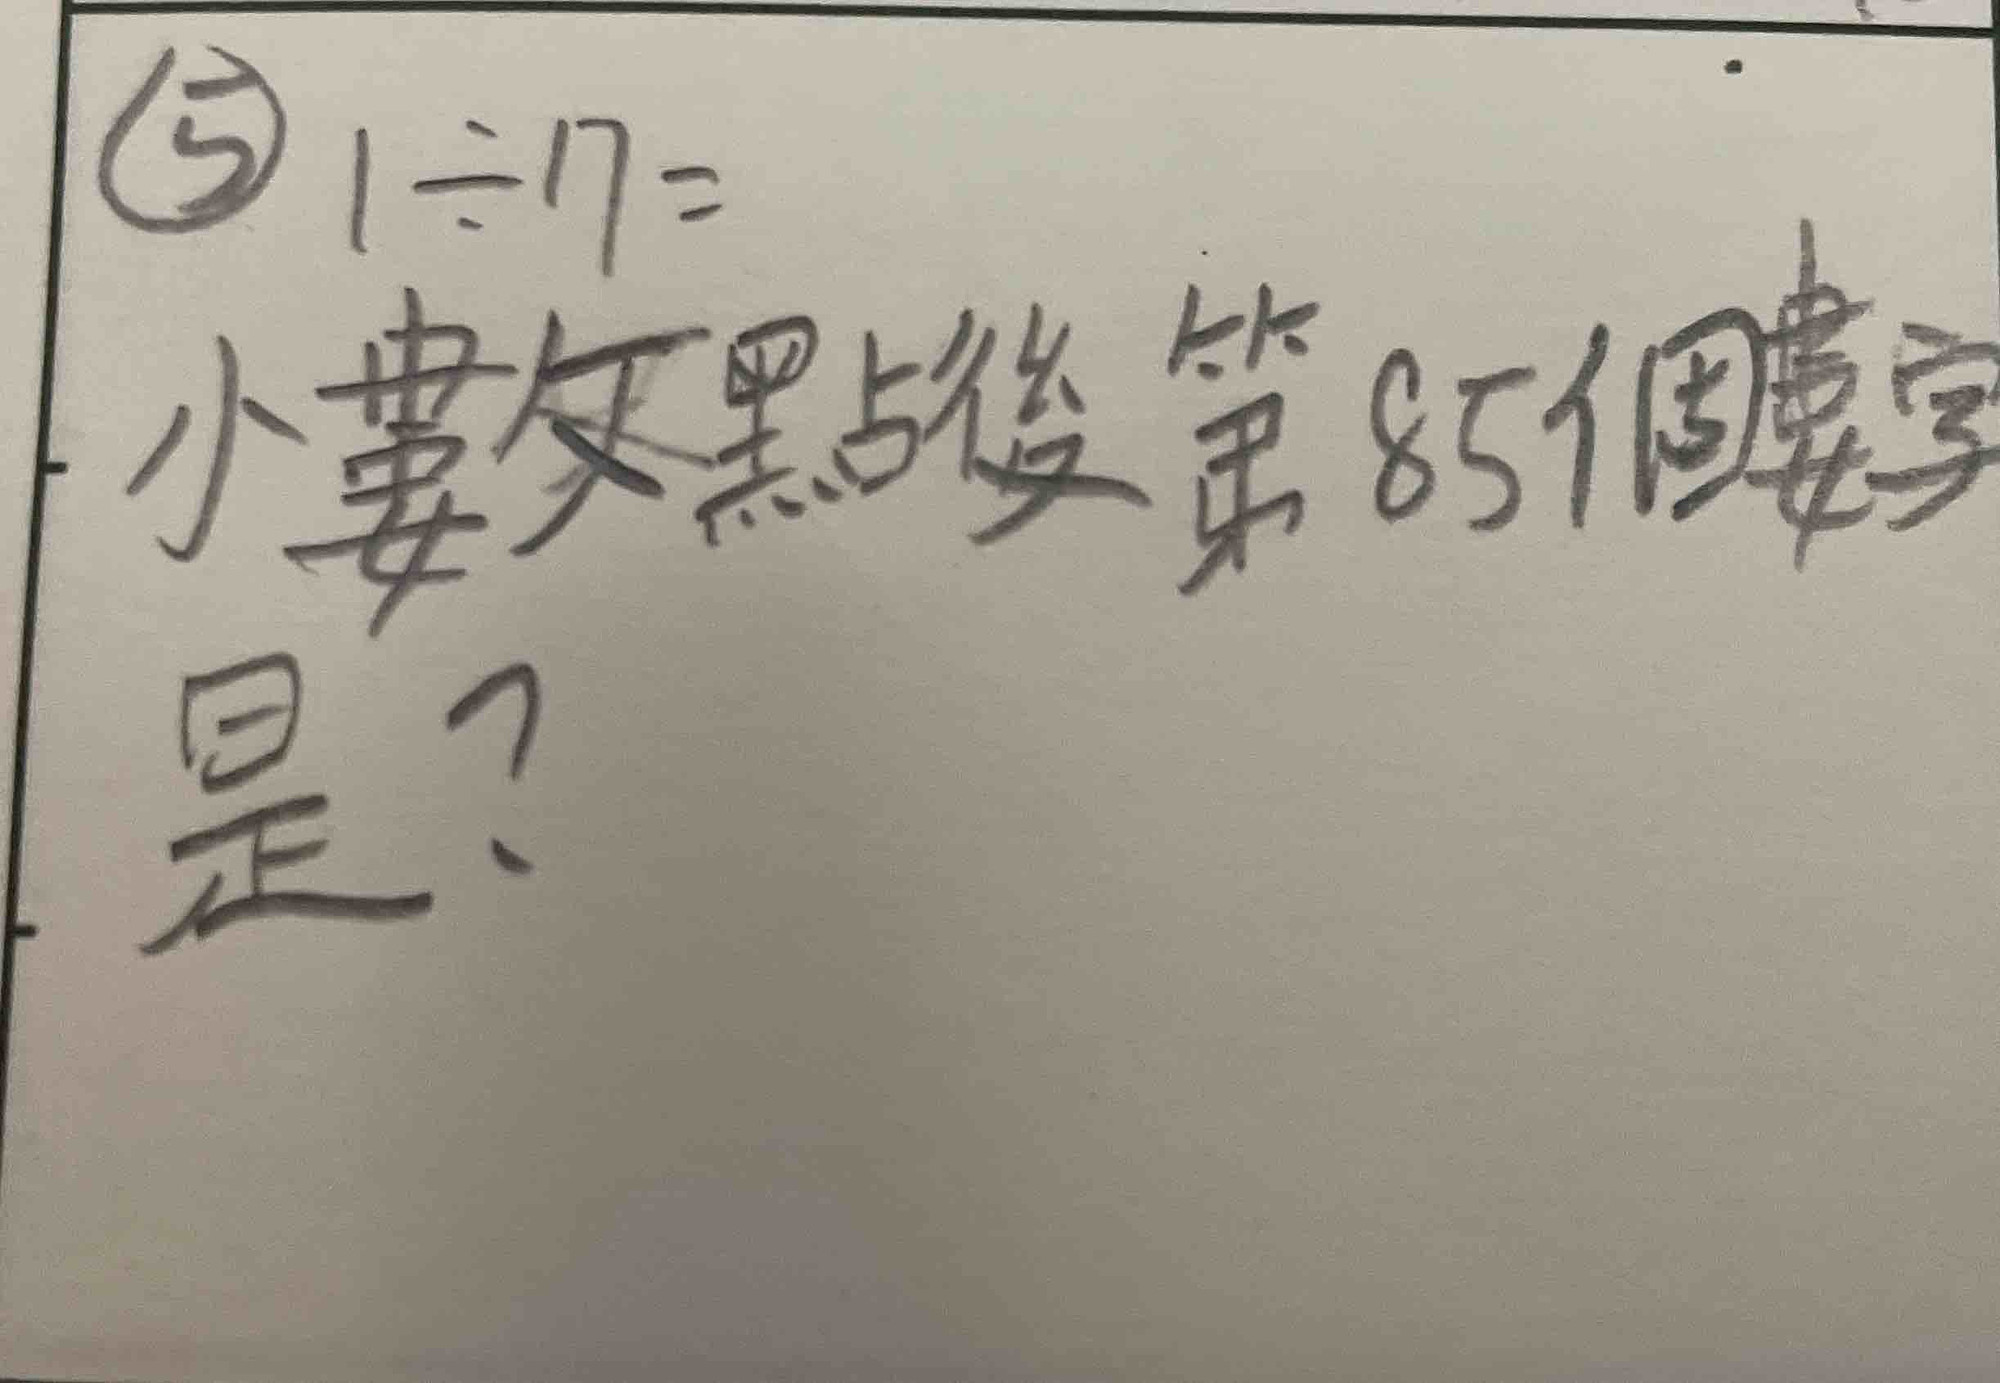 ⑤ 1÷17=
小數點後第85個數字
是?